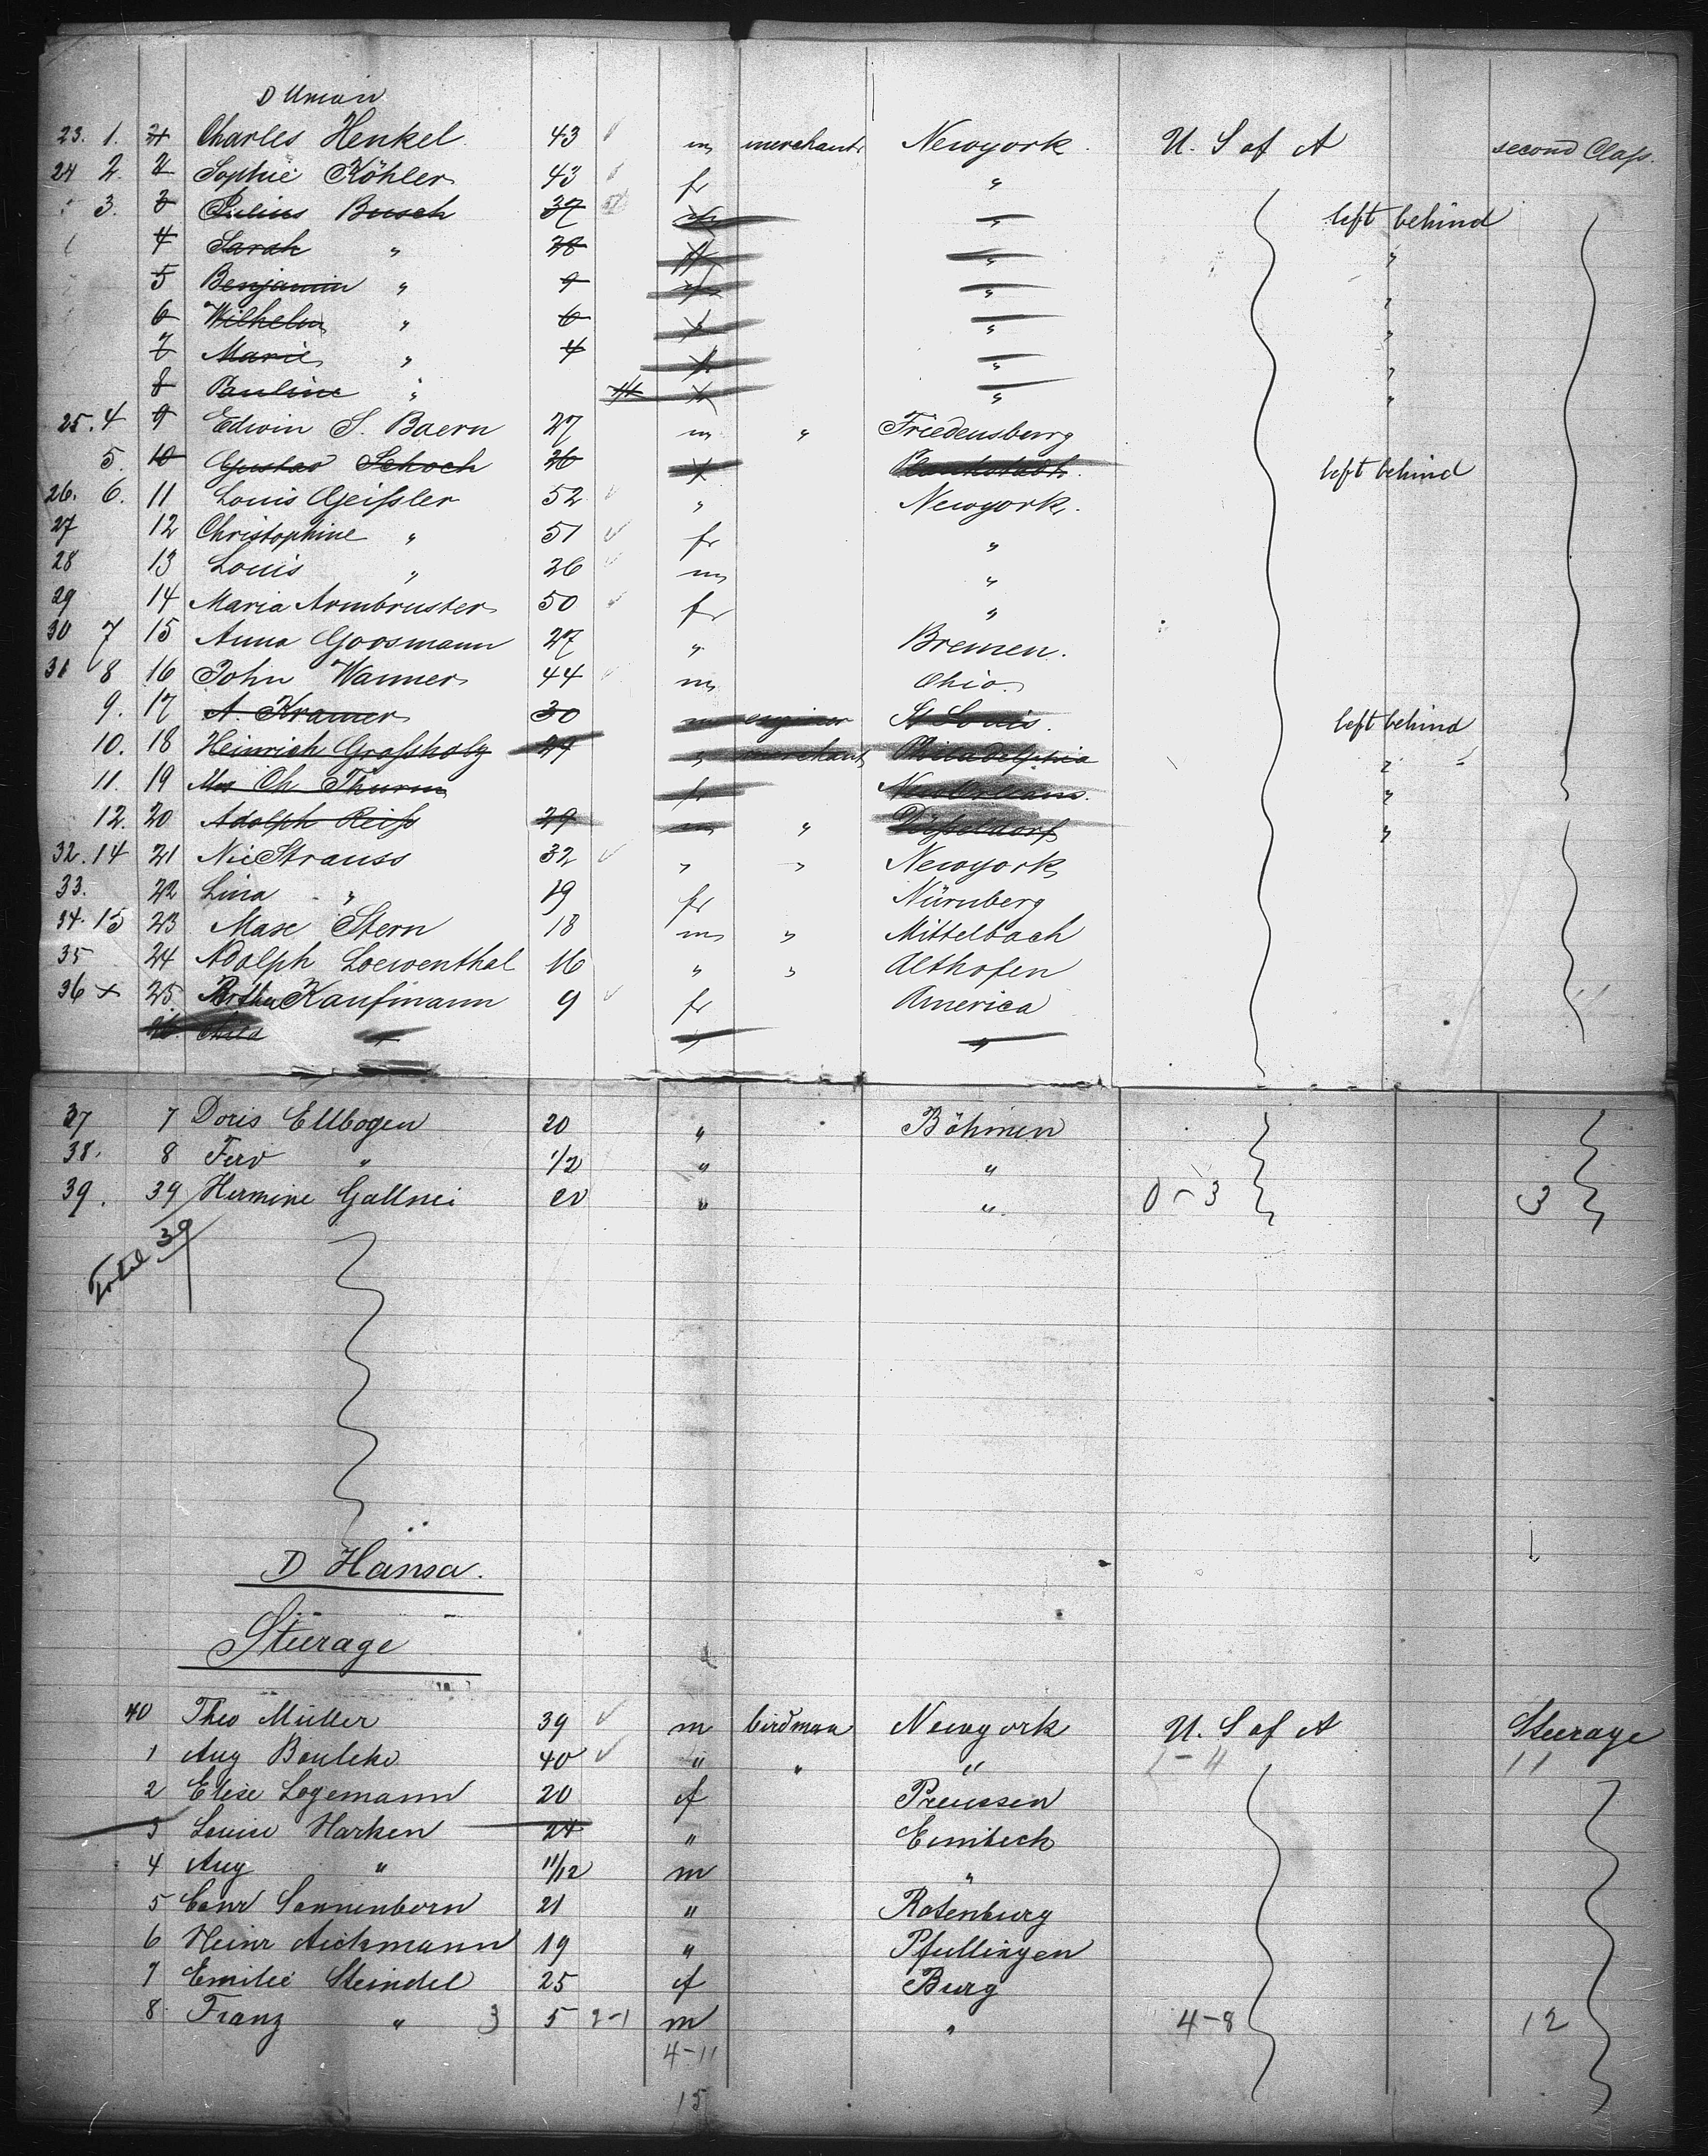 D Union
23. 1. Charles Henkel 43 m merchant Newyork. U. S of A second Class.
24 2. 2 Sophie Köhler 43 fr "
3. 3 Julius Busch 37 " left behind
4 Sarah " 28 " "
5 Benjamin " 9 " "
6 Wilhelm " 6 " "
7 Marie " 4 " "
8 Pauline " " "
25. 4 9 Edwin S. Baern 27 m " Friedensburg
5. 10 Gustav Schoch 26 left behind
26. 6. 11 Louis Geißler 52 " Newyork.
27 12 Christophine " 51 fr "
28 13 Louis " 26 m "
29 14 Maria Armbruster 50 fr "
30 7 15 Anna Goosmann 27 " Bremen.
31 8 16 John Wanner 44 m Ohio.
9. 17 A. Kramer 30 m St Louis. left behind
10. 18 Heinrich Graßholz 24 " merchant Philadelphia "
11. 19 Mrs Ch Thurm fr New Orleans. "
12. 20 Adolph Reiß 29 m " Düsseldorf "
32. 14 21 Nie Strauss 32 " " Newyork
33. 22 Lina " 19 fr Nürnberg
34. 15 23 Max Stern 18 m " Mittelbach
35 24 Adolph Loewenthal 16 " " Althofen
36 x 25 Kaufmann 9 fr America
26. Child " " "
37 7 Doris Ellbogen 20 " Böhmen
38. 8 Ferd " 1/2 " "
39. 39 Hermine Gallnei 20 " " 0-3 3
Total 39
D Hansa.
Steerage
40 Theo Müller 39 m birdman Newyork U. S of A Steerage
1 Aug Bauleke 40 " " " 2-4 11
2 Elise Logemann 20 f Preussen
3 Louise Harken 24 " Einbeck
4 Aug " 11/12 m "
5 Conr Sonnenborn 21 " Rotenburg
6 Heinr Aickmann 19 " Pfullingen
7 Emilie Steindel 25 f Burg
8 Franz " 3 5 2-1 m " 4-8 12
4-11
15